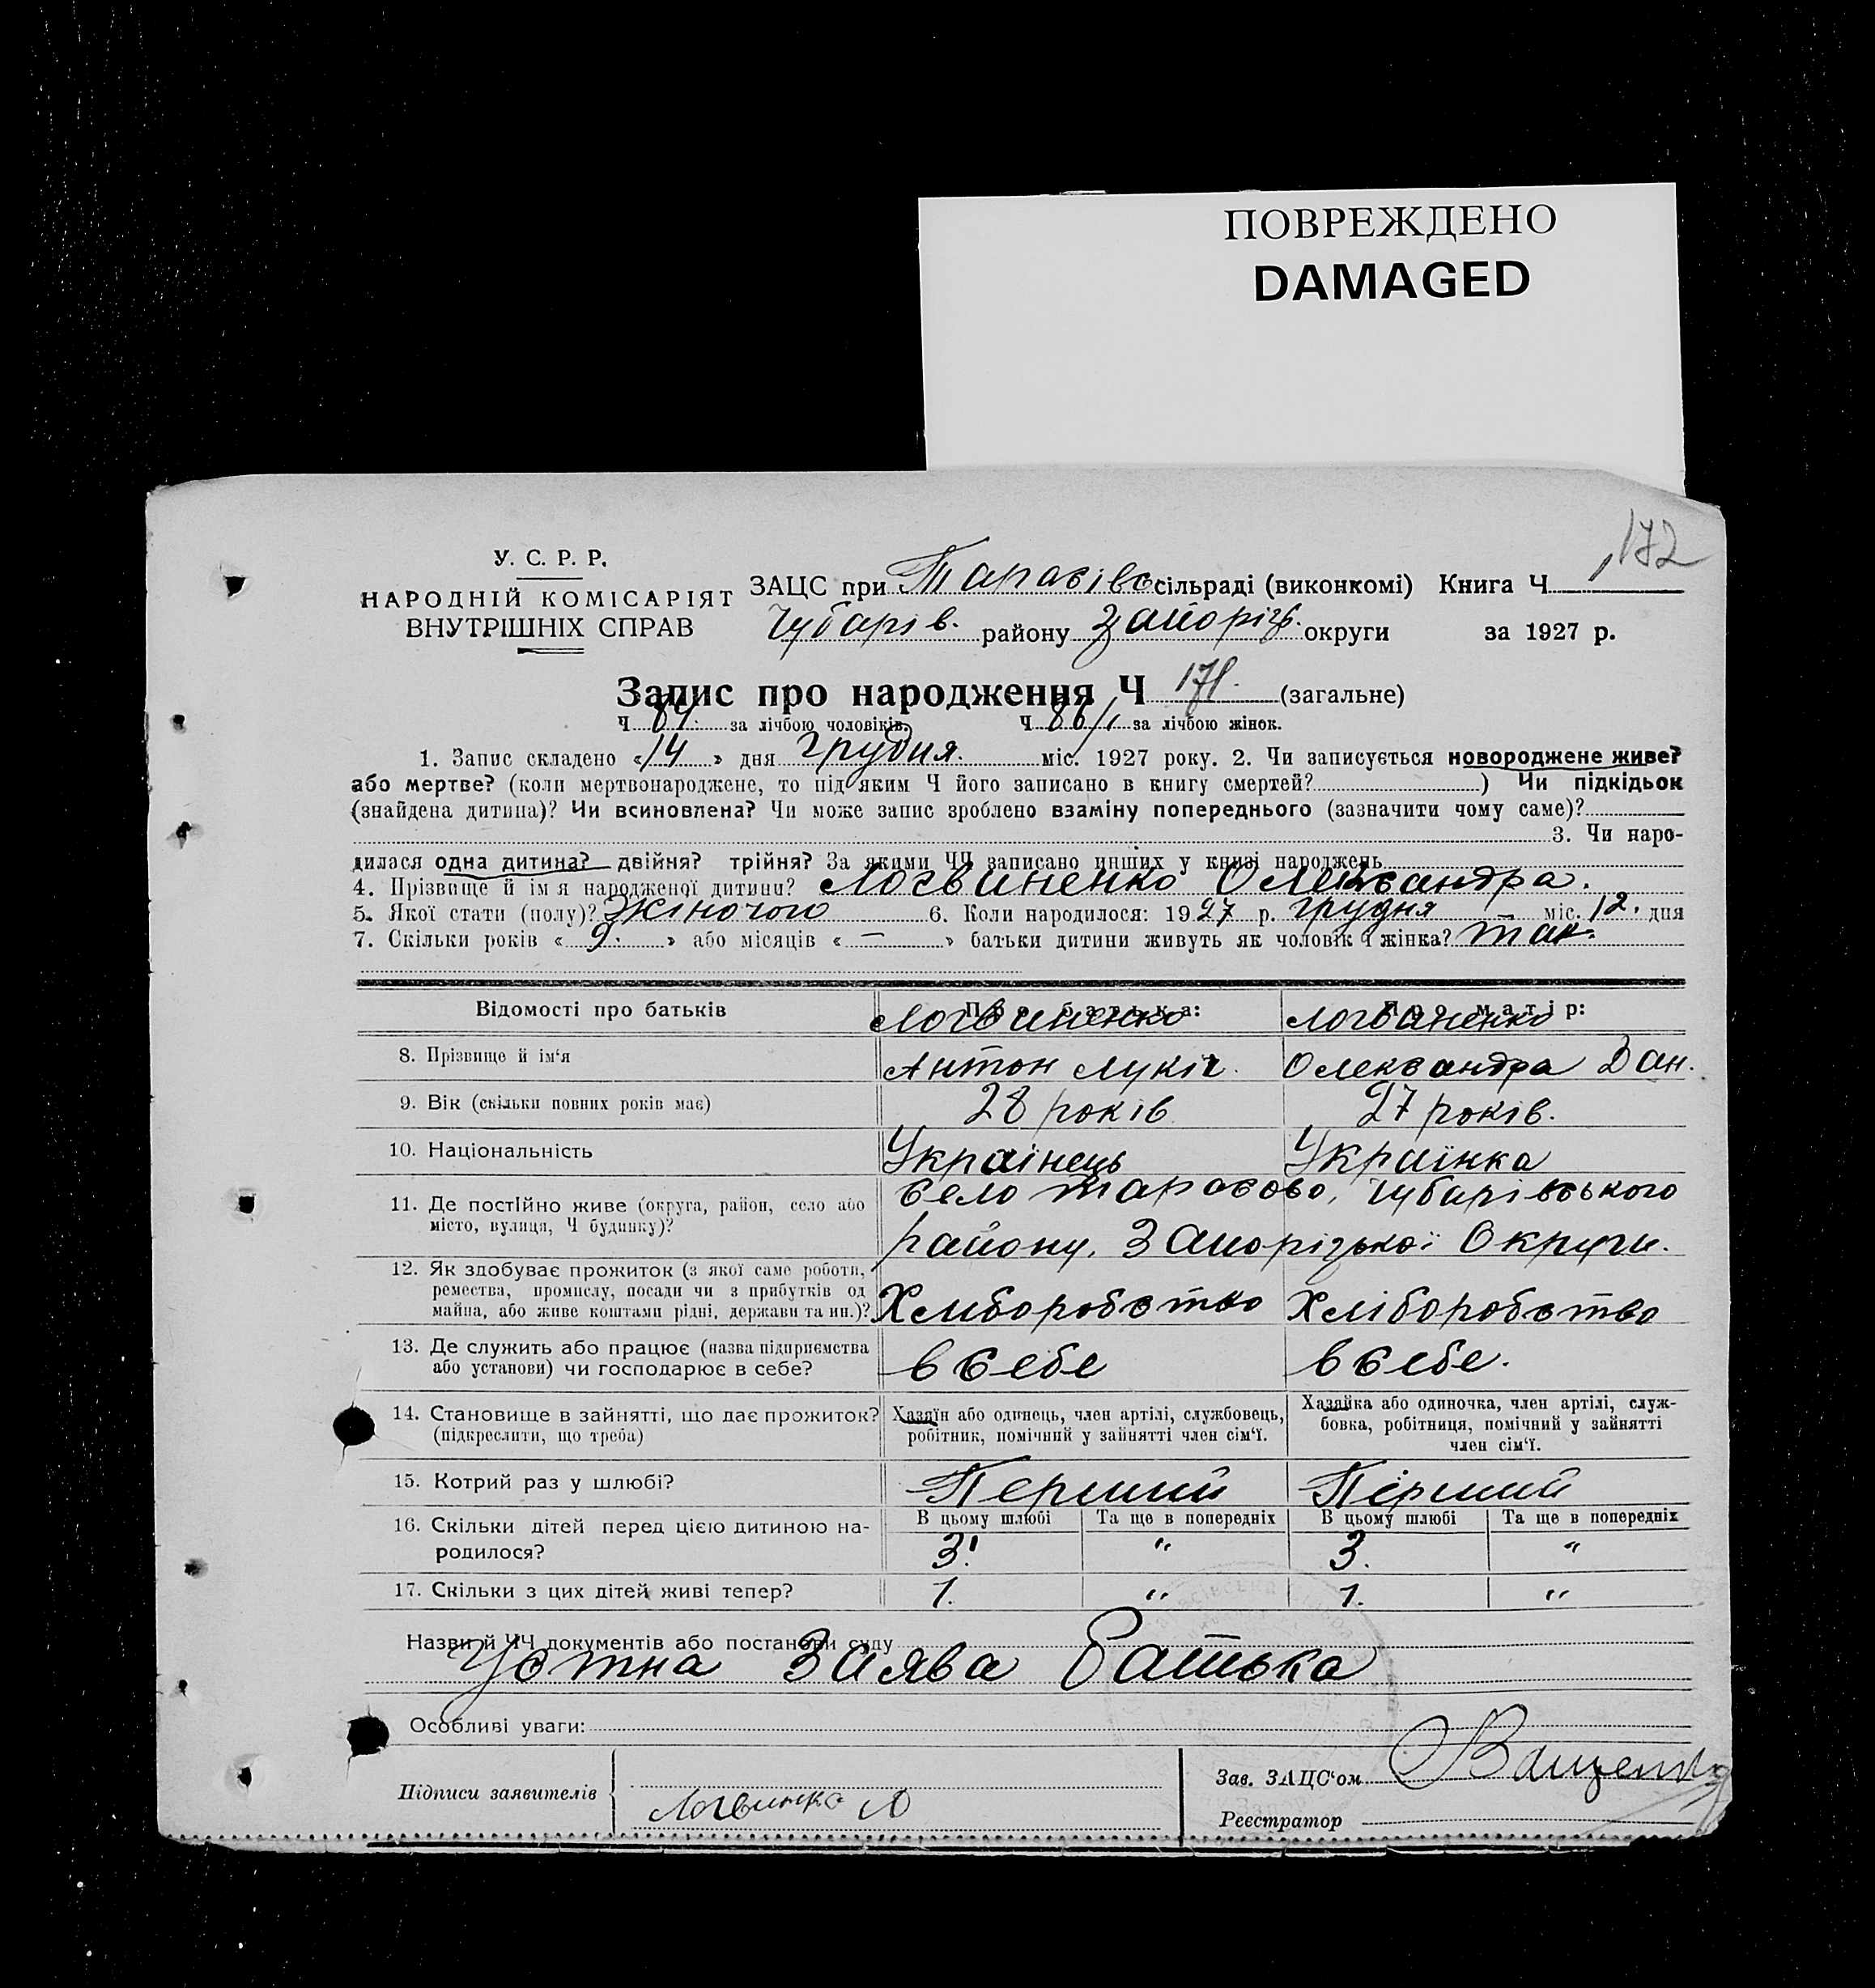 ПОВРЕЖДЕНО
DAMAGED
172
У. С. Р. Р.
НАРОДНІЙ КОМІСАРІЯТ
ВНУТРІШНІХ СПРАВ
ЗАЦС при Тарасівс сільраді (виконкомі) Книга Ч
Чубарів. району Запоріз. округи за 1927 р.
Запис про народження Ч (загальне)
Ч 84. за лічбою чоловіків. Ч 86 за лічбою жінок.
1. Запис складено «14» дня грудня. міс. 1927 року. 2. Чи записується новороджене живе?
або мертве? (коли мертвонароджене, то під яким Ч його записано в книгу смертей? ) Чи підкідьок
(знайдена дитина)? Чи всиновлена? Чи може запис зроблено взаміну попереднього (зазначити чому саме)?
3. Чи наро-
дилася одна дитина? двійня? трійня? За якими ЧЧ записано инших у книзі народжень
4. Прізвище й ім'я народженої дитини? Логвиненко Олександра.
5. Якої стати (полу)? Жіночого 6. Коли народилося: 1927 р. грудня міс. 12. дня
7. Скільки років «9.» або місяців «—» батьки дитини живуть як чоловік і жінка? так.
Відомості про батьків Про батька: Про матір:
Логвиненко Логвиненко
8. Прізвище й ім'я Антон Лукіч. Олександра Дан.
9. Вік (скільки повних років має) 28 років 27 років.
10. Національність Українець Українка
11. Де постійно живе (округа, район, село або місто, вулиця, Ч будинку)? село Тарасово, Чубарівського
району, Запорізької Округи.
12. Як здобуває прожиток (з якої саме роботи,
ремества, промислу, посади чи з прибутків од
майна, або живе коштами рідні, держави та ин.)? Хлиборобство Хліборобство
13. Де служить або працює (назва підприємства
або установи) чи господарює в себе? в себе в себе.
14. Становище в зайнятті, що дає прожиток?
(підкреслити, що треба)
Хазяїн або одинець, член артілі, службовець,
робітник, помічний у зайнятті член сім'ї.
Хазяйка або одиночка, член артілі, служ-
бовка, робітниця, помічний у зайнятті
член сім'ї.
15. Котрий раз у шлюбі? Перший Перший
16. Скільки дітей перед цією дитиною на-
родилося?
В цьому шлюбі Та ще в попередніх В цьому шлюбі Та ще в попередніх
3. " 3. "
17. Скільки з цих дітей живі тепер? 1. " 1. "
Назви й ЧЧ документів або постанови суду
Устна Заява батька
Особливі уваги:
Підписи заявителів
Зав. ЗАЦС'ом Ващенко
Реєстратор